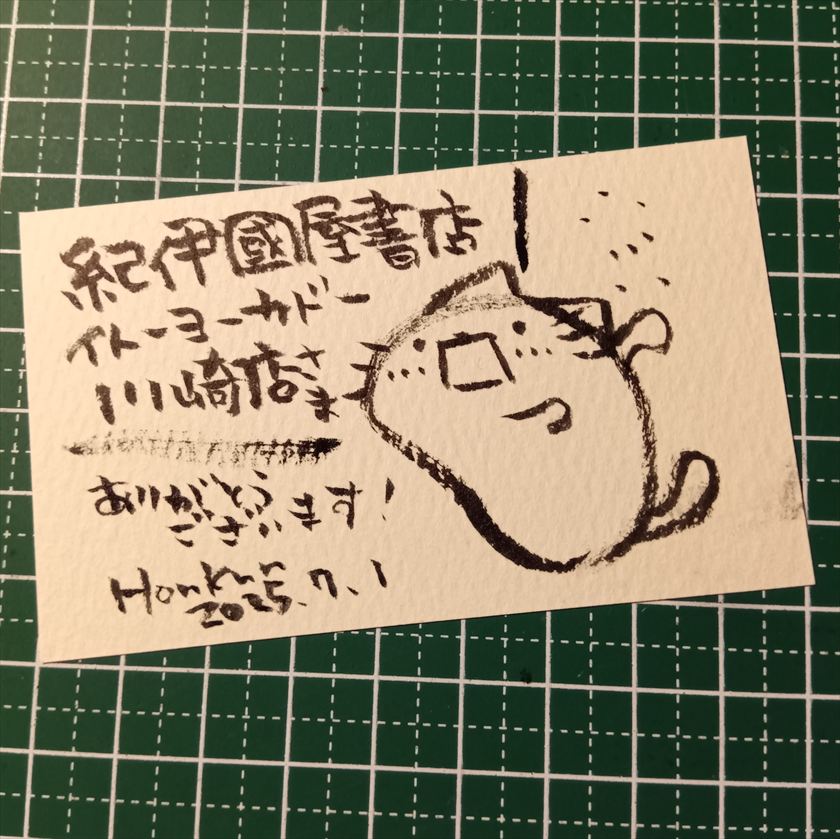 紀伊國屋書店
イトーヨーカドー
川崎店さま
ありがとう
ございます!
Honkun
2025.7.1